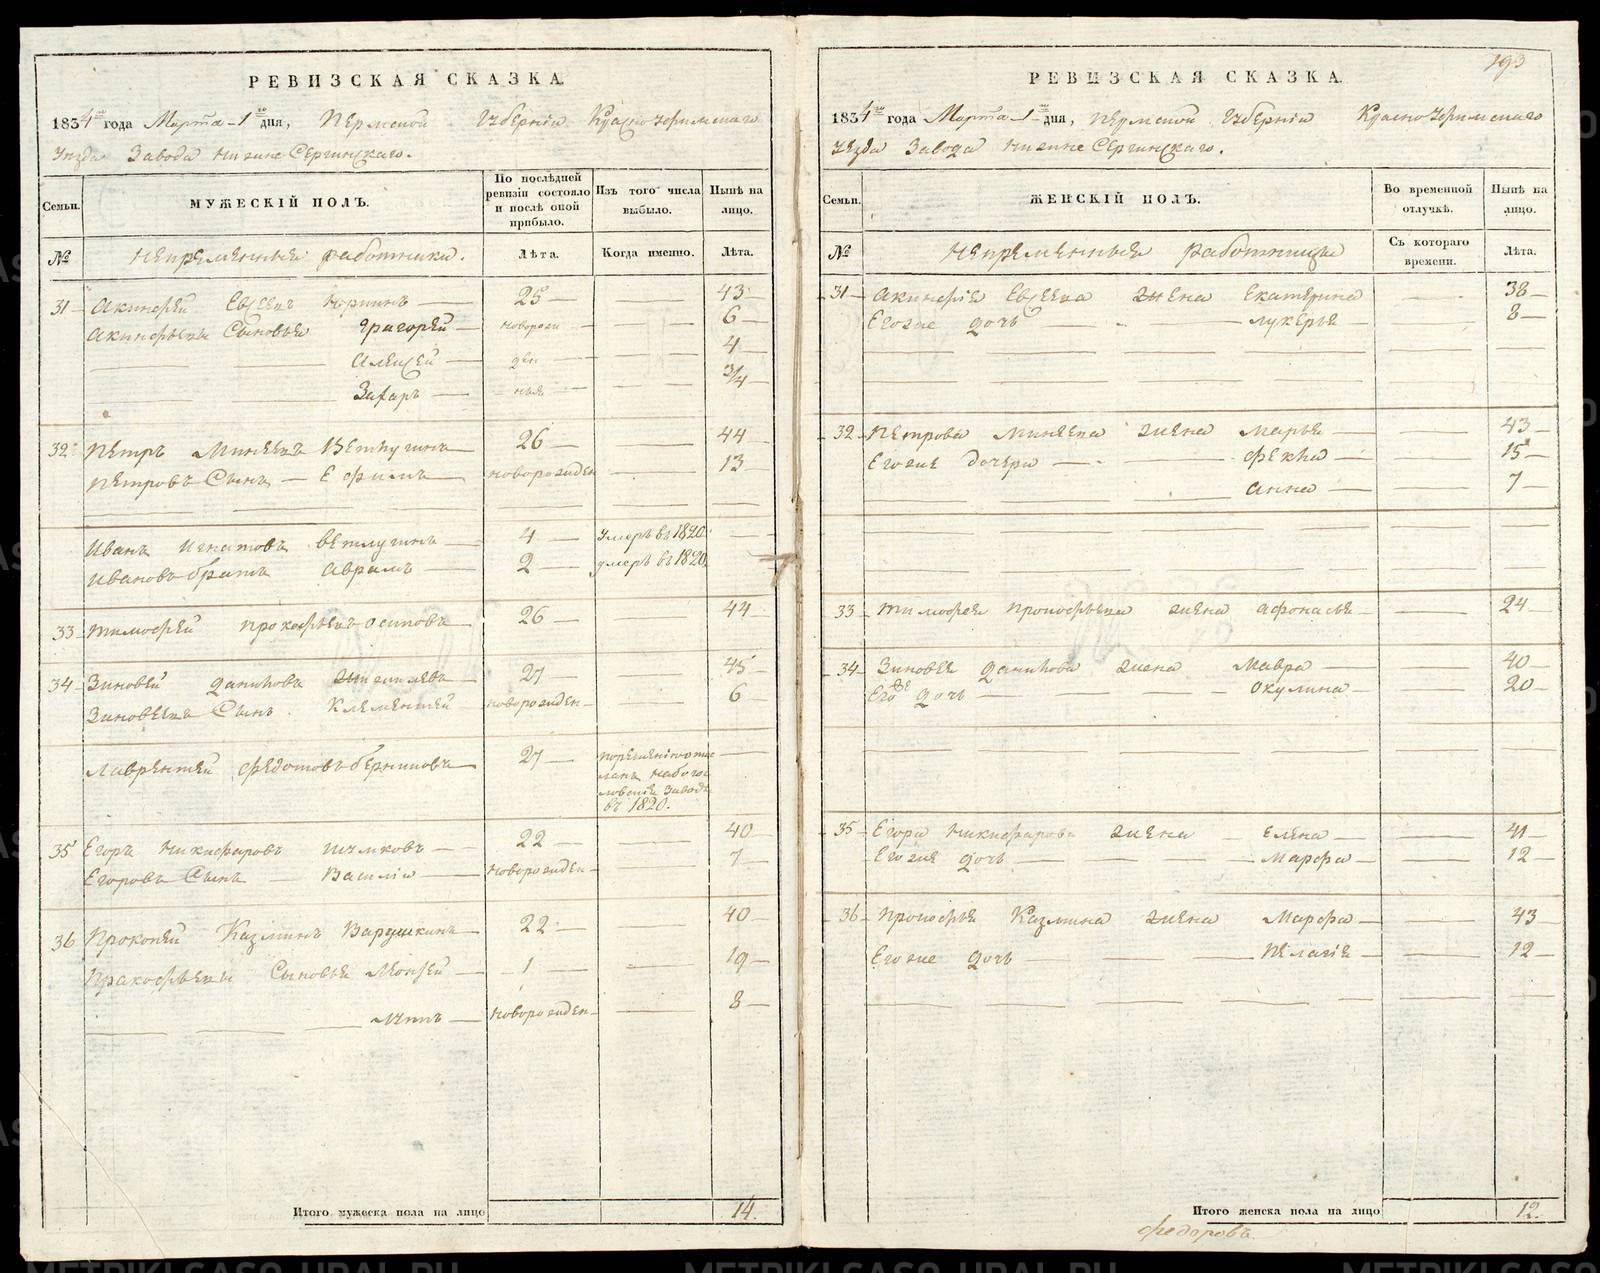 РЕВИЗСКАЯ СКАЗКА.
1834го года Марта 1го дня, Пермской Губерніи Красноуфимскаго
Уезда Завода Нижне Сергинскаго.
Семьи.
МУЖЕСКІЙ ПОЛЪ.
По послѣдней ревизіи состояло и послѣ оной прибыло.
Изъ того числа выбыло.
Нынѣ на лицо.
№ Непременныя работники. Лѣта. Когда именно. Лѣта.
31 Акинфей Евсеевъ 25 43
Акинфьевы Сыновья Григорей новорож 6
Алексей ден 4
Захаръ ныя 3/4
32 Петръ Минеевъ Ветлугинъ 26 44
Петровъ Сынъ Ефимъ новорожден 13
Иванъ Игнатовъ ветлугинъ 4 умеръ въ 1820
Ивановъ братъ Аврамъ 2 умеръ въ 1820
33 Тимофей прокофьевъ осиповъ 26 44
34 Зиновей даниловъ 27 45
Зиновьевъ Сынъ Клементей новорожден 6
Лаврентей федотовъ 27
завод
въ 1820.
35 Егоръ Никифоровъ 22 40
Егоровъ Сынъ Василій новорожден 7
36 Прокопей Казминъ Варушкинъ 22 40
Пракофьевы Сыновья 1 19
новорожден 8
Итого мужеска пола на лицо 14.
193
РЕВИЗСКАЯ СКАЗКА.
1834го года Марта 1 дня, Пермской Губерніи Красноуфимскаго
Уезда Завода Нижне Сергинскаго.
Семьи.
ЖЕНСКІЙ ПОЛЪ.
Во временной отлучкѣ.
Нынѣ на лицо.
№ Непременныя работницы Съ котораго времени. Лѣта.
31 Акинфія Евсеева жена Екатерина 38
Егоже дочь лукерья 8
32 Петрова Минеева жена марья 43
Егоже дочери фекла 15
анна 7
33 Тимофея прокофьева жена афонасья 24
34 Зиновья данилова жена Мавра 40
Егоже дочь окулина 20
35 Егора Никифарова жена елена 41
Егоже дочь марфа 12
36 Прокофья Казмина жена Марфа 43
Егоже дочь Пелагія 12
Итого женска пола на лицо 12.
федоровъ
METRIKI.GASO-URAL.RU